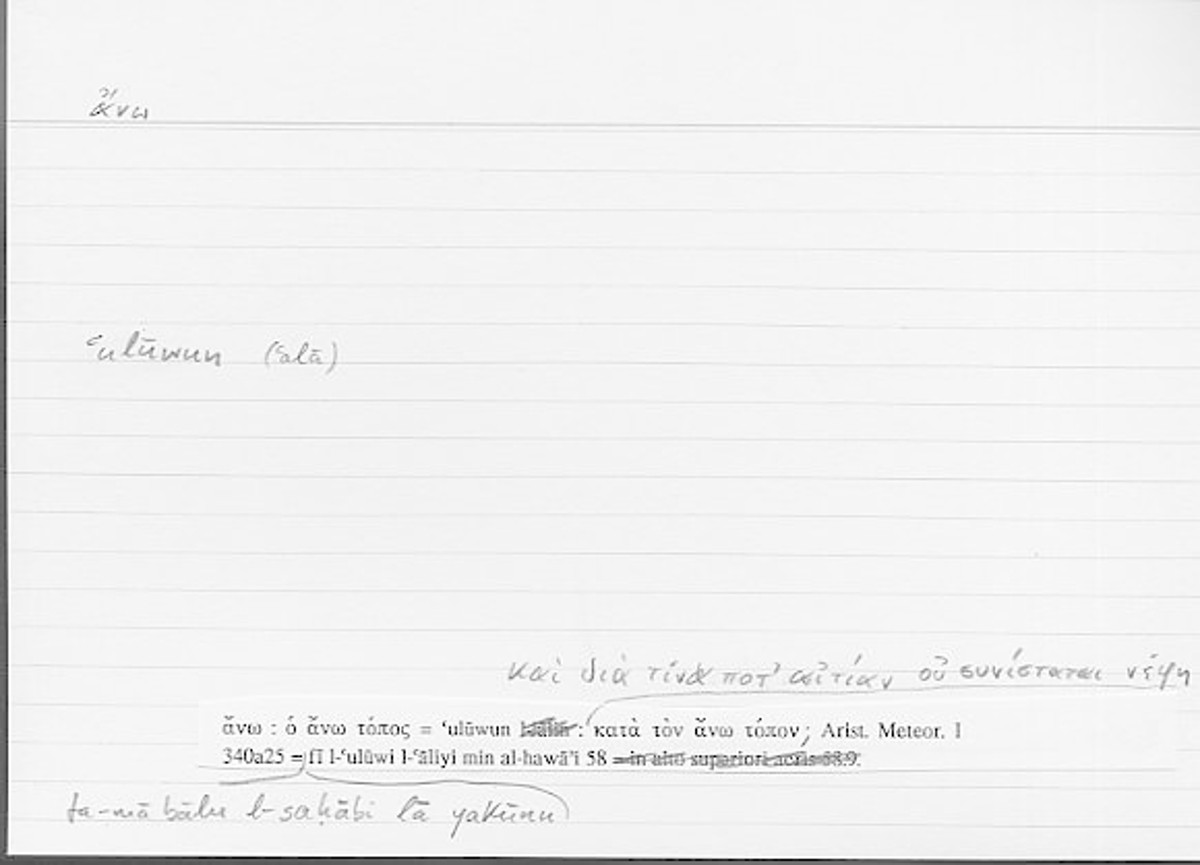 ἄνω
ʿulūwun (ʿalā)
καὶ διὰ τίνα ποτ' αἰτίαν οὐ συνίσταται νέφη
ἄνω : ὁ ἄνω τόπος = ʿulūwun : κατὰ τὸν ἄνω τόπον; Arist. Meteor. I
340a25 = fī l-ʿulūwi l-ʿāliyi min al-hawāʾi 58 = in alto superiori aeris 58.9.
fa-mā bālu l-saḥābi lā yakūnu